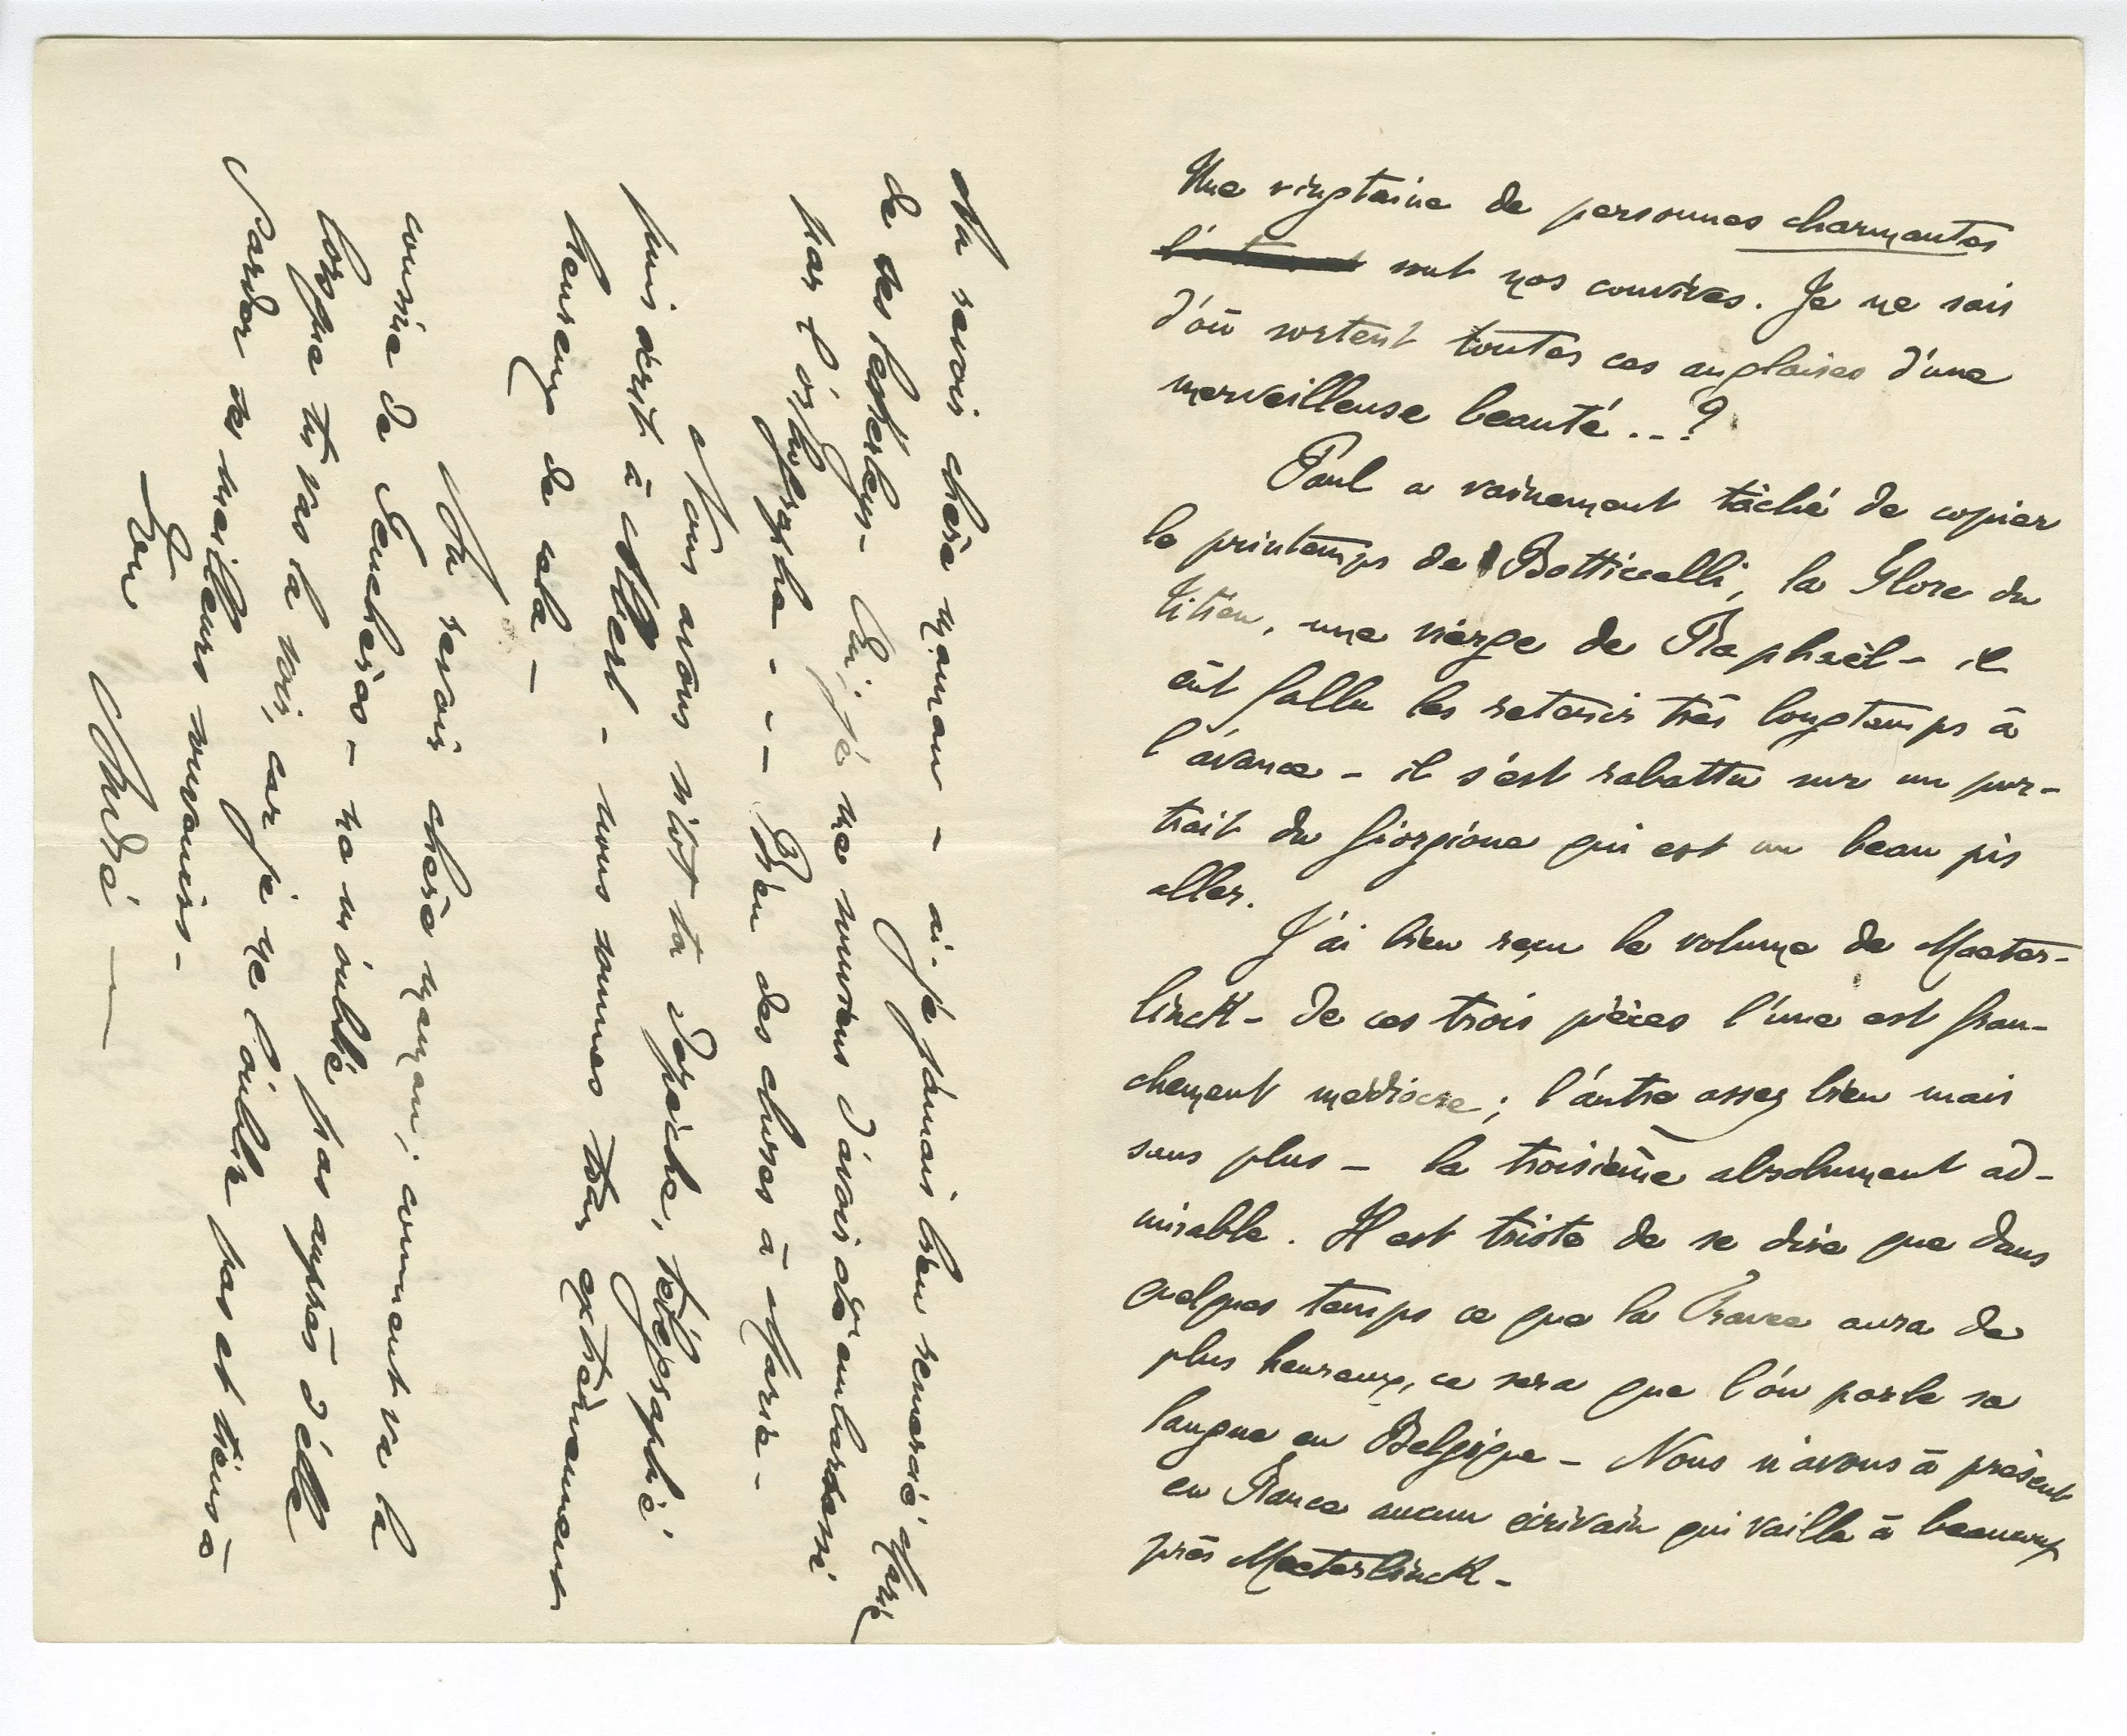 Une vingtaine de personnes charmantes
sont nos convives. Je ne sais
d'où sortent toutes ces anglaises d'une
merveilleuse beauté...?
Paul a vainement tâché de copier
le printemps de Botticelli, la Flore du
titien, une vierge de Raphaël - il
eût fallu les retenir très longtemps à
l'avance - il s'est rabattu sur un por-
trait du Giorgione qui est un beau pis
aller.
J'ai bien reçu le volume de Maeter-
linck - de ces trois pièces l'une est fran-
chement médiocre ; l'autre assez bien mais
sans plus - la troisième absolument ad-
mirable. Il est triste de se dire que dans
quelques temps ce que la France aura de
plus heureux, ce sera que l'on parle sa
langue en Belgique - Nous n'avons à présent
en France aucun écrivain qui vaille à beaucoup
près Maeterlinck -
Au revoir chère maman - ai-je jamais bien remercié Marie
de ses Oui, je me souviens d'avoir été embarrassé
par l'orthographe - - - Bien des choses à Maria -
Nous avons sitôt ta dépêche, télégraphié
puis écrit à Albert - nous sommes tous extrêmement
heureux de cela -
Au revoir chère maman ; comment va la
cousine de Feuchères - ne m'oublie pas auprès d'elle
lorsque tu vas la voir, car je ne l'oublie pas et tiens à
garder ses meilleurs souvenirs -
Ton
André